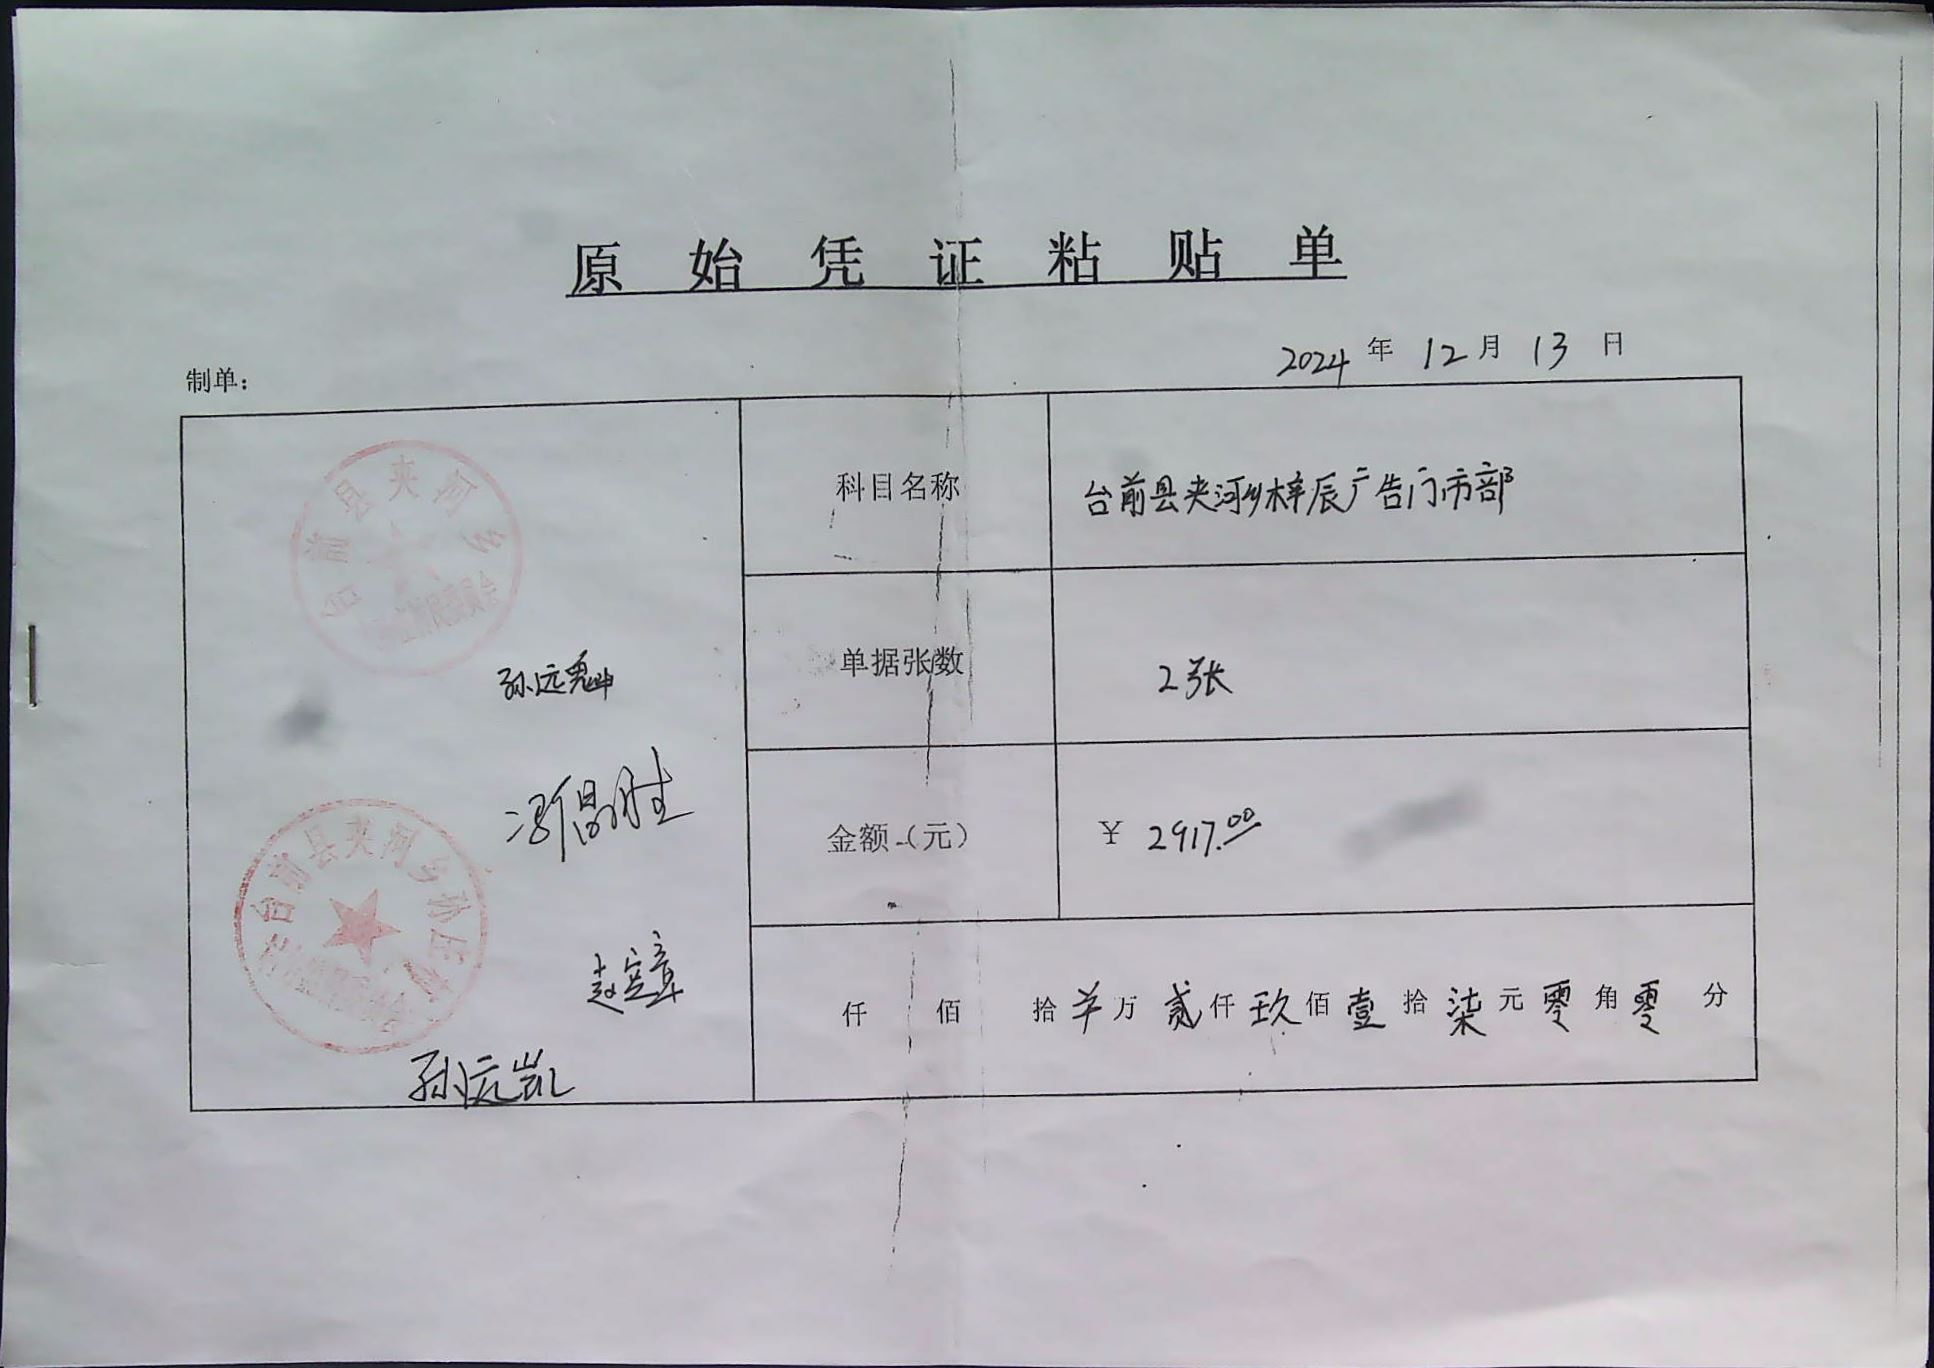 原始凭证粘贴单
2024年12月13日
制单：
科目名称 台前县夹河乡梓辰广告门市部
单据张数 2张
金额（元） ￥2917.00
仟 佰 拾 羊万 贰仟 玖佰 壹拾 柒元 零角 零分
台前县夹河乡
孙远魁
冯倡胜
台前县夹河乡孙庄村
赵宝章
孙远凯